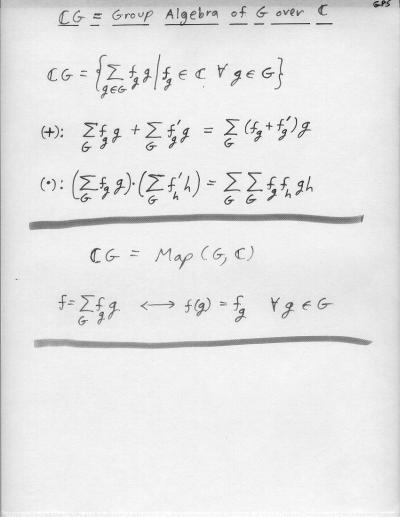 GPS
ℂG = Group Algebra of G over ℂ
ℂG = {∑_{g∈G} f_g g | f_g ∈ ℂ ∀ g ∈ G}
(+): ∑_G f_g g + ∑_G f'_g g = ∑_G (f_g + f'_g) g
(•): (∑_G f_g g)·(∑_G f'_h h) = ∑_G ∑_G f_g f_h gh
ℂG = Map(G, ℂ)
f = ∑_G f_g g ⟷ f(g) = f_g ∀ g ∈ G